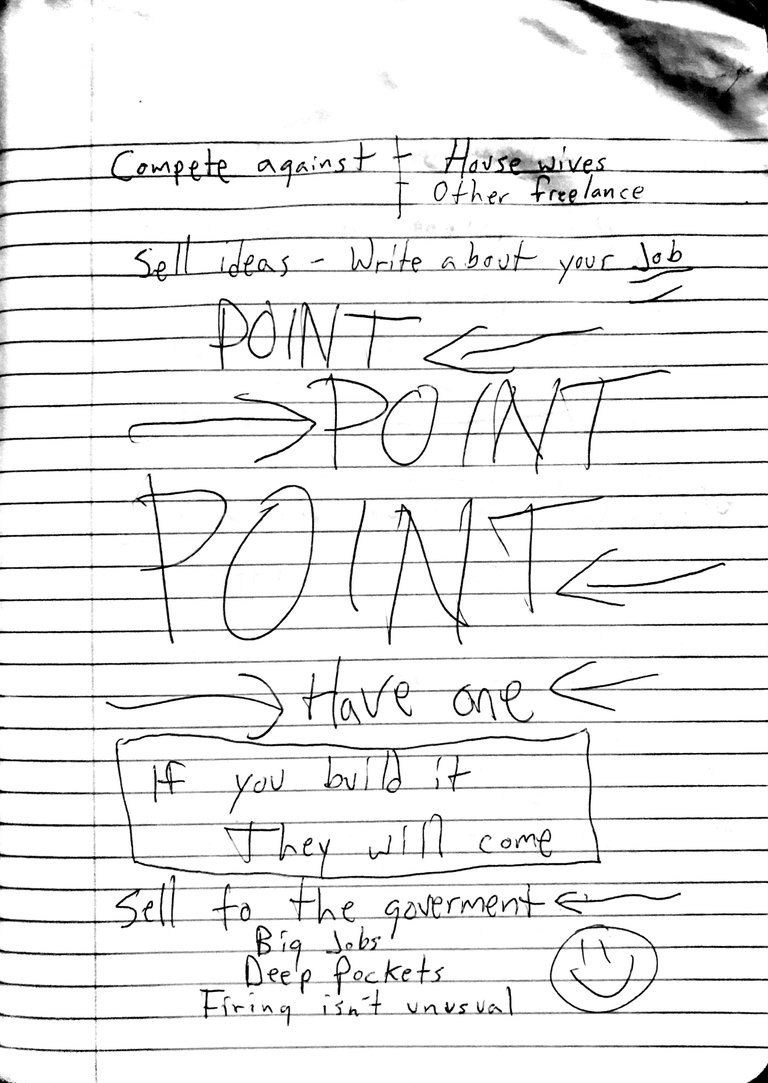 Compete against - House wives
- Other freelance
Sell ideas - Write about your Job
POINT
POINT
POINT
Have one
If you build it
They will come
Sell to the goverment
Big Jobs
Deep Pockets
Firing isn't unusual